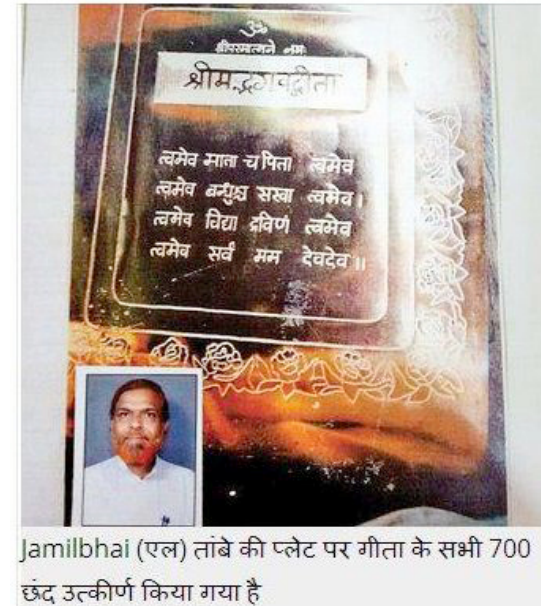 ॐ
श्रीपरमात्मने नमः
श्रीमद्भगवद्गीता
त्वमेव माता च पिता त्वमेव
त्वमेव बन्धुश्च सखा त्वमेव।
त्वमेव विद्या द्रविणं त्वमेव
त्वमेव सर्वं मम देवदेव॥
Jamilbhai (एल) तांबे की प्लेट पर गीता के सभी 700
छंद उत्कीर्ण किया गया है